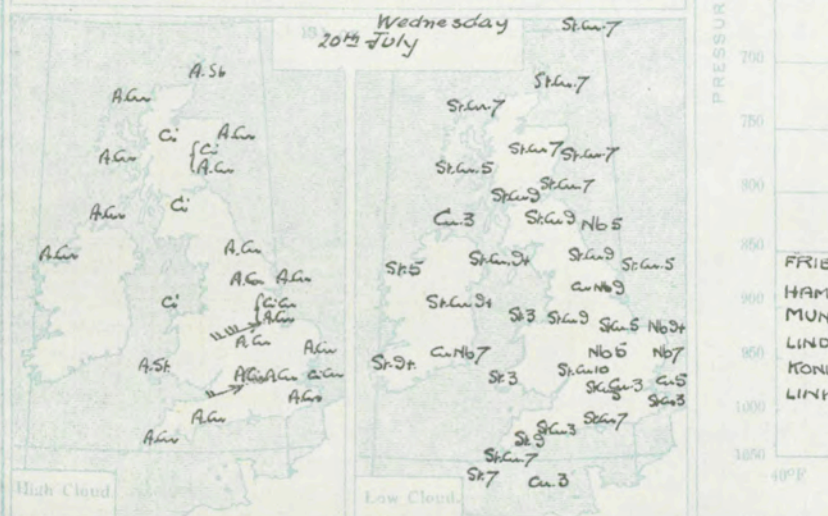 Wednesday
20th July
A.St
A.Cu
Ci
A.Cu
Ci
A.Cu
A.Cu
Ci
A.Cu
A.Cu
A.Cu
A.Cu
A.Cu
Ci
Ci Cu
A.Cu
A.Cu
A.Cu
A.St.
A.Cu
Ci Cu
A.Cu
A.Cu
A.Cu
High Cloud.
St.Cu.7
St.Cu.7
St.Cu.7
St.Cu.7
St.Cu.7
St.Cu.5
St.Cu.7
St.Cu.9
Cu.3
St.Cu.9
Nb 5
St.5
St.Cu.9+
St.Cu.9
St.Cu.5
Cu Nb 9
St.Cu.9+
St.3
St.Cu 9
St.Cu 5
Nb 9+
St.9+
Cu Nb 7
Nb 6
Nb 7
St.3
St.Cu 10
Cu.3
Cu 5
St.Cu 3
St.Cu 7
St.Cu.3
St.9
St.Cu.7
St.7
Cu.3
Low Cloud.
PRESSUR
700
750
800
850
900
950
1000
1050
40°F
FRIE
HAM
MUN
LIND
KON
LINK